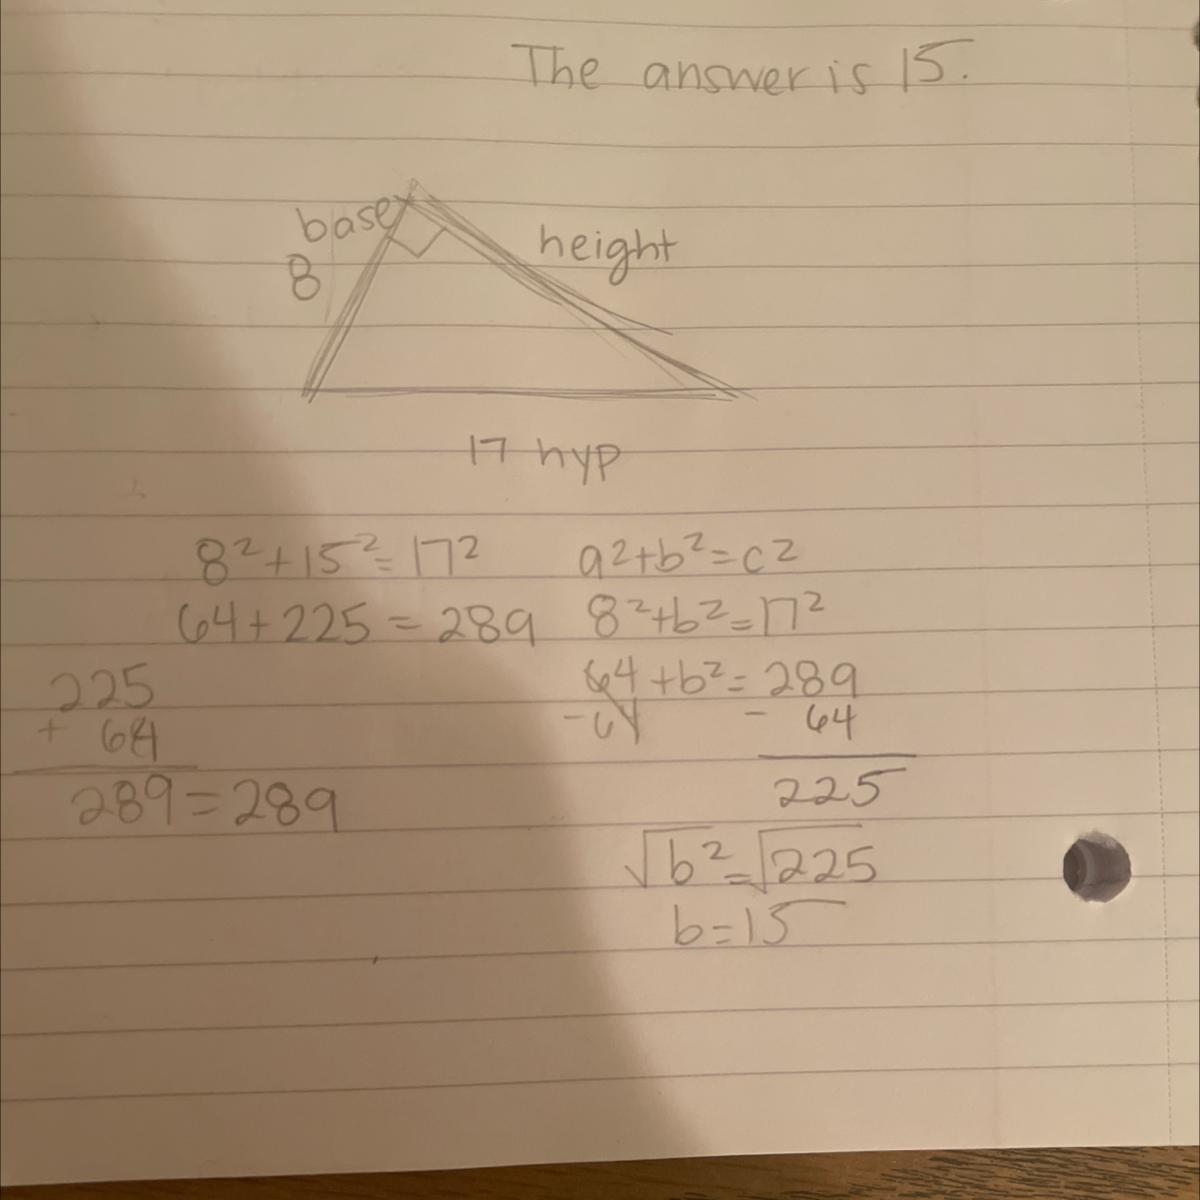 The answer is 15.
base
8
height
17 hyp
8²+15²=17²
64+225=289
225
+ 64
289=289
a²+b²=c²
8²+b²=17²
64+b²=289
-64 - 64
225
√b²=√225
b=15